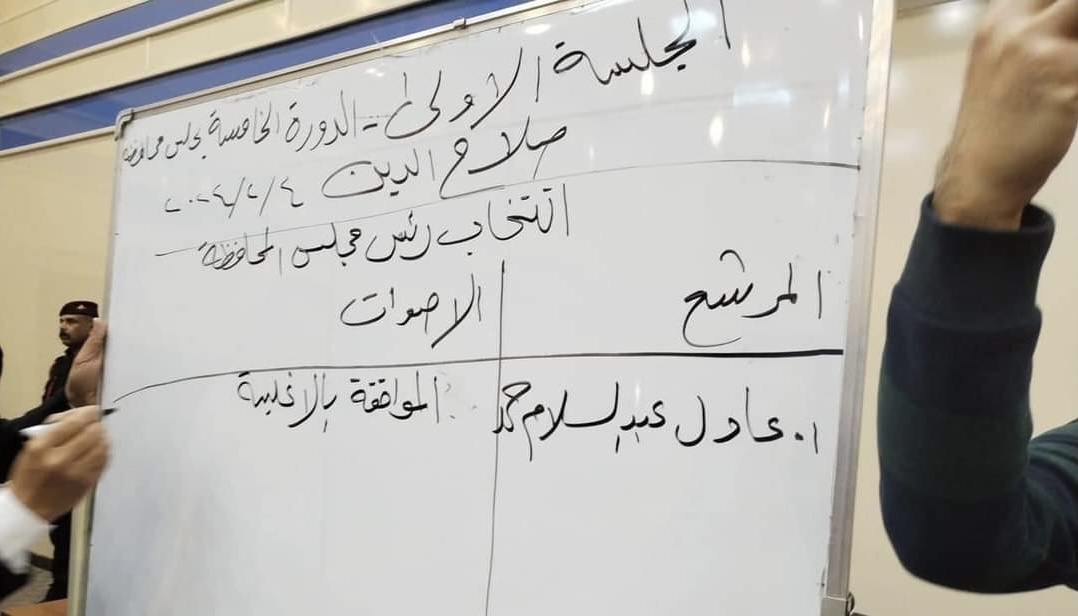 الجلسة الاولى - الدورة الخامسة لمجلس محافظة
صلاح الدين ٢٠٢٤/٢/٤
انتخاب رئس مجلس المحافظة
المرشح
الاصوات
١. عادل عبدالسلام حمد
الموافقة بالاغلبية